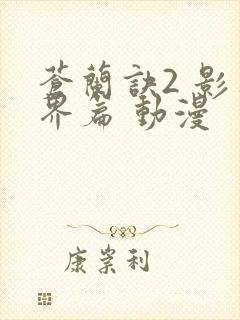 蒼蘭訣2 影
界篇 動漫
康崇利